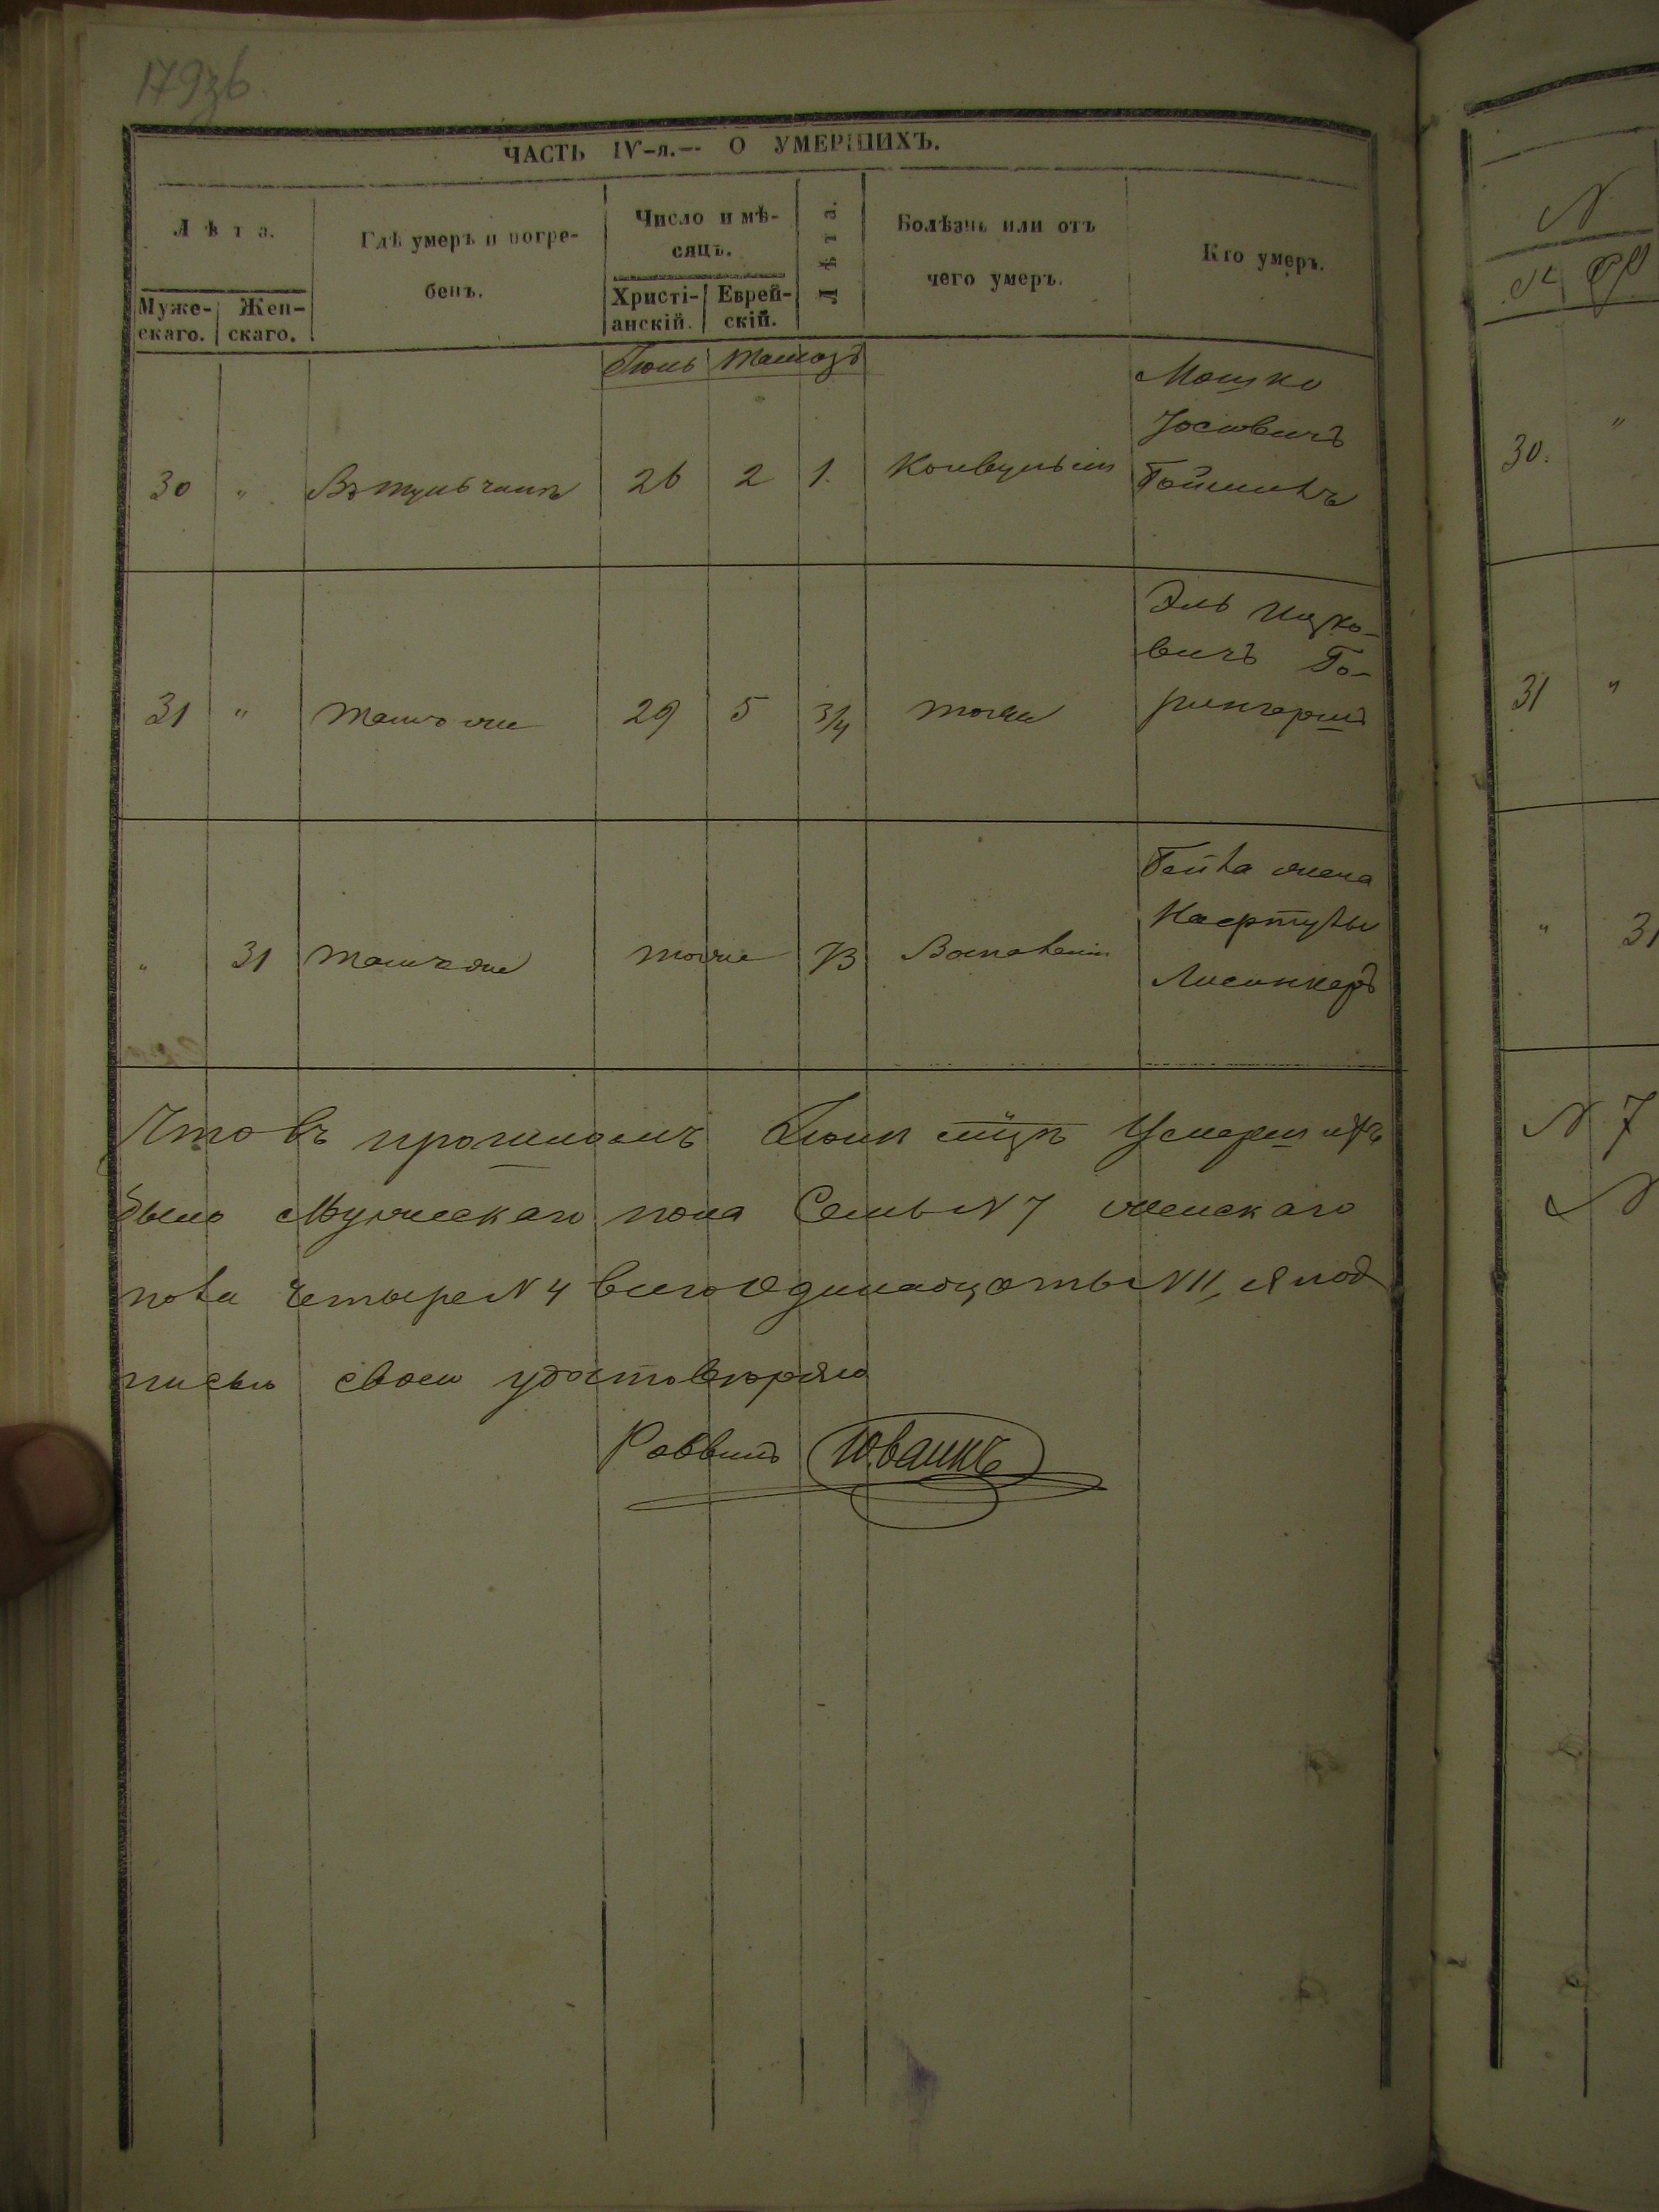 179зб
ЧАСТЬ IV-я.— О УМЕРШИХЪ.
Лѣта.
Муже-
скаго.
Жен-
скаго.
Гдѣ умеръ и погре-
бенъ.
Число и мѣ-
сяцъ.
Христі-
анскій.
Еврей-
скій.
Лѣта.
Болѣзнь или отъ
чего умеръ.
Кто умеръ.
Іюнь Тамозъ
30 " Въ Тульчинѣ 26 2 1. Конвульсіи
Мошко
Іосіовичъ
31 " Тамъ же 29 5 3/4 тоже
Эль Ицко-
вичъ
" 31 Тамъ же тоже 73 Воспаленіи
Бейла жена
Лисинкеръ
Что въ прошломъ Іюнѣ мцѣ Умершихъ
было Мужескаго пола Семь N 7 женскаго
пола Четыре N 4 всего Одинадцать N 11, я под
писью своею удостовѣряю
Раввинъ
N
М
30. "
31 "
" 31
N 7
N